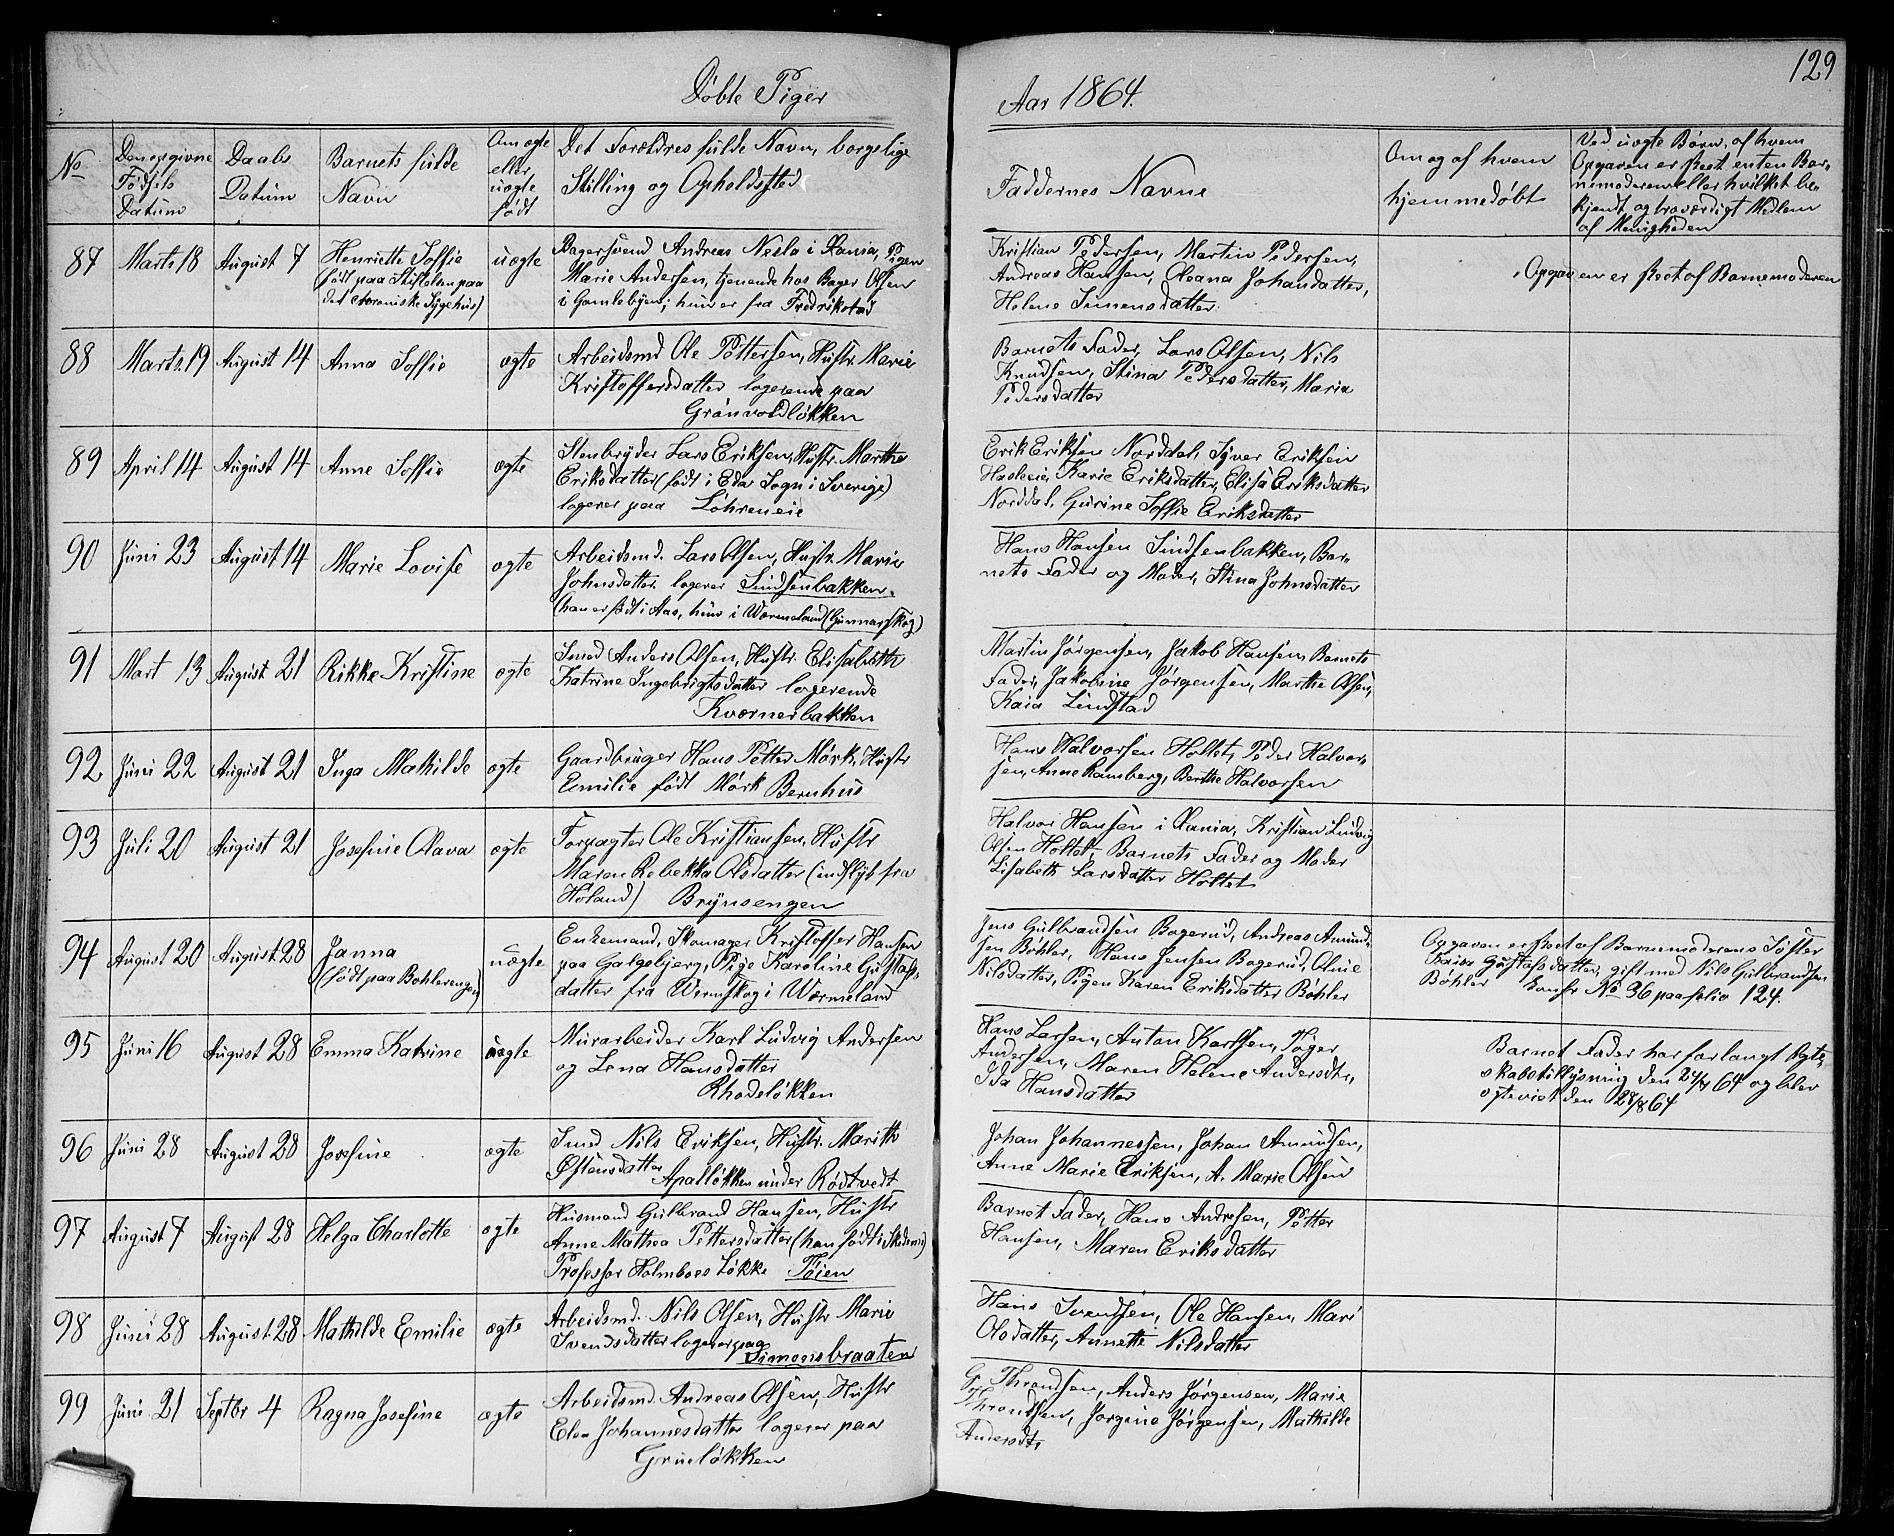 129
Døbte Piger
Aar 1864.
No
Den opgivne Fødsels Datum
Daabs Datum
Barnets fulde Navn
Om ægte eller uægte født
Det Forældres fulde Navn, borgelige Stilling og Opholdssted
Faddernes Navne
Om og af hvem hjemmedøbt
Ved uægte Børn, af hvem
Opgaven er skeet enten Bar-
nemoderen eller hvilket be-
kjendt og troværdigt Medlem
af Menigheden
87 Marts 18 August 7 Henriette Soffie uægte Bagersvend Andreas Nesla i Xania, Pigen
(født paa Stiftelsen paa Marie Andersen, tjenende hos Bager Olsen
det Sygehus) i Gamlebyen; hun er fra Fredrikstad
Kristian Pedersen, Martin Pedersen,
Andreas Hansen, Oleana Johansdatter,
Helene Simensdatter
Opgaven er skeet af Barnemoderen
88 Marts 19 August 14 Anna Soffie ægte Arbeidsmd Ole Pettersen, Hustr. Marie
Kristoffersdatter logerende paa
Grønvoldløkken
Barnets Fader, Lars Olsen, Nils
Knudsen, Stina Pedersdatter, Maria
Pedersdatter
89 April 14 August 14 Anne Soffie ægte Stenbryder Lars Eriksen, Hustr. Marthe
Eriksdatter (født i Eda Sogn i Sverige)
logerer paa Löhreneie
Erik Eriksen Norddal, Syver Eriksen
Karie Eriksdatter, Elisa Eriksdatter
Norddal, Gurine Soffie Eriksdatter
90 Juni 23 August 14 Marie Lovise ægte Arbeidsmd. Lars Olsen, Hustr Marie
Johnsdatter logerer Sindsenbakken.
(han er født i Aas, hun i Wermeland (Gunnarskog)
Hans Hansen Sindsenbakken, Bar-
nets Fader og Moder, Stina Johnsdatter
91 Mart 13 August 21 Rikke Kristine ægte Smed Anders Olsen, Hustr. Elisabeth
Katrine Ingebrigtsdatter logerende
Kværnerbakken
Martin Jørgensen, Jakob Hansen, Barnets
Fader, Jakobine Jörgensen, Marthe Olsen,
Kaia Lindstad
92 Juni 22 August 21 Inga Mathilde ægte Gaardbruger Hans Petter Mörk, Hustr
Emilie født Mörk Bernhus
Hans Halvorsen Holtet, Peder Halvor-
sen, Anne Ramberg, Berthe Halvorsen
93 Juli 20 August 21 Josefine Olava ægte Forpagter Ole Kristiansen, Hustr
Maren Rebekka Olsdatter (indflyt fra
Høland) Brynsengen
Halvor Hansen i Xania, Kristian Ludvig
Olsen Holtet, Barnets Fader og Moder
Lisabeth Larsdatter Holtet
94 August 20 August 28 Janna uægte Enkemand, Skomager Kristoffer Hansen
(født paa Bøhlerengen) paa Galgebjerg, Pige Karoline Gustafs-
datter fra Wermskog i Wærmeland
Jens Gulbrandsen Bogerud, Andreas Amund-
sen Bøhler, Hans Jensen Bogerud, Oline
Nilsdatter, Pigen Karen Eriksdatter Bøhler
Opgaven er skeet af Barnemoderens Søster
Kaisa Gustafsdatter, gift med Nils Gulbrandsen
Bøhler Confr No 36 paa folio 124.
95 Juni 16 August 28 Emma Katrine uægte Murarbeider Karl Ludvig Andersen
og Lena Hansdatter
Rhodeløkken
Hans Larsen, Anton Karlsen, Peger
Andersen, Maren Helene Andersdtr,
Ida Hansdatter
Barnet Fader har forlangt Ægte-
skabstillysning den 64 og blev
ægteviet den 28/8 64
96 Juni 28 August 28 Josefine ægte Smed Nils Eriksen, Hustr. Marith
Østensdatter Apalløkken under Rødtvedt
Johan Johannessen, Johan Amundsen,
Anne Marie Eriksen, A. Marie Olsen
97 August 7 August 28 Helga Charlotte ægte Husmand Gulbrand Hansen, Hustr
Anne Mathea Pettersdatter (han født i Skedsmo)
Professor Holmboes Løkke Töien
Barnet Fader, Hans Andresen, Petter
Hansen, Maren Eriksdatter
98 Juni 28 August 28 Mathilde Emilie ægte Arbeidsmd. Nils Olsen, Hustr Marie
Svendsdatter logerer paa
Simensbraaten
Hans Svendsen, Ole Hansen, Mari
Olsdatter, Annette Nilsdatter
99 Juni 21 Septbr 4 Ragna Josefine ægte Arbeidsmd. Andreas Olsen, Hustr
Elen Johannesdatter logerer paa
Grüeløkken
G. Throndsen, Anders Jørgensen, Marie
Throndsen, Jorgine Jørgensen, Mathilde
Andersdtr